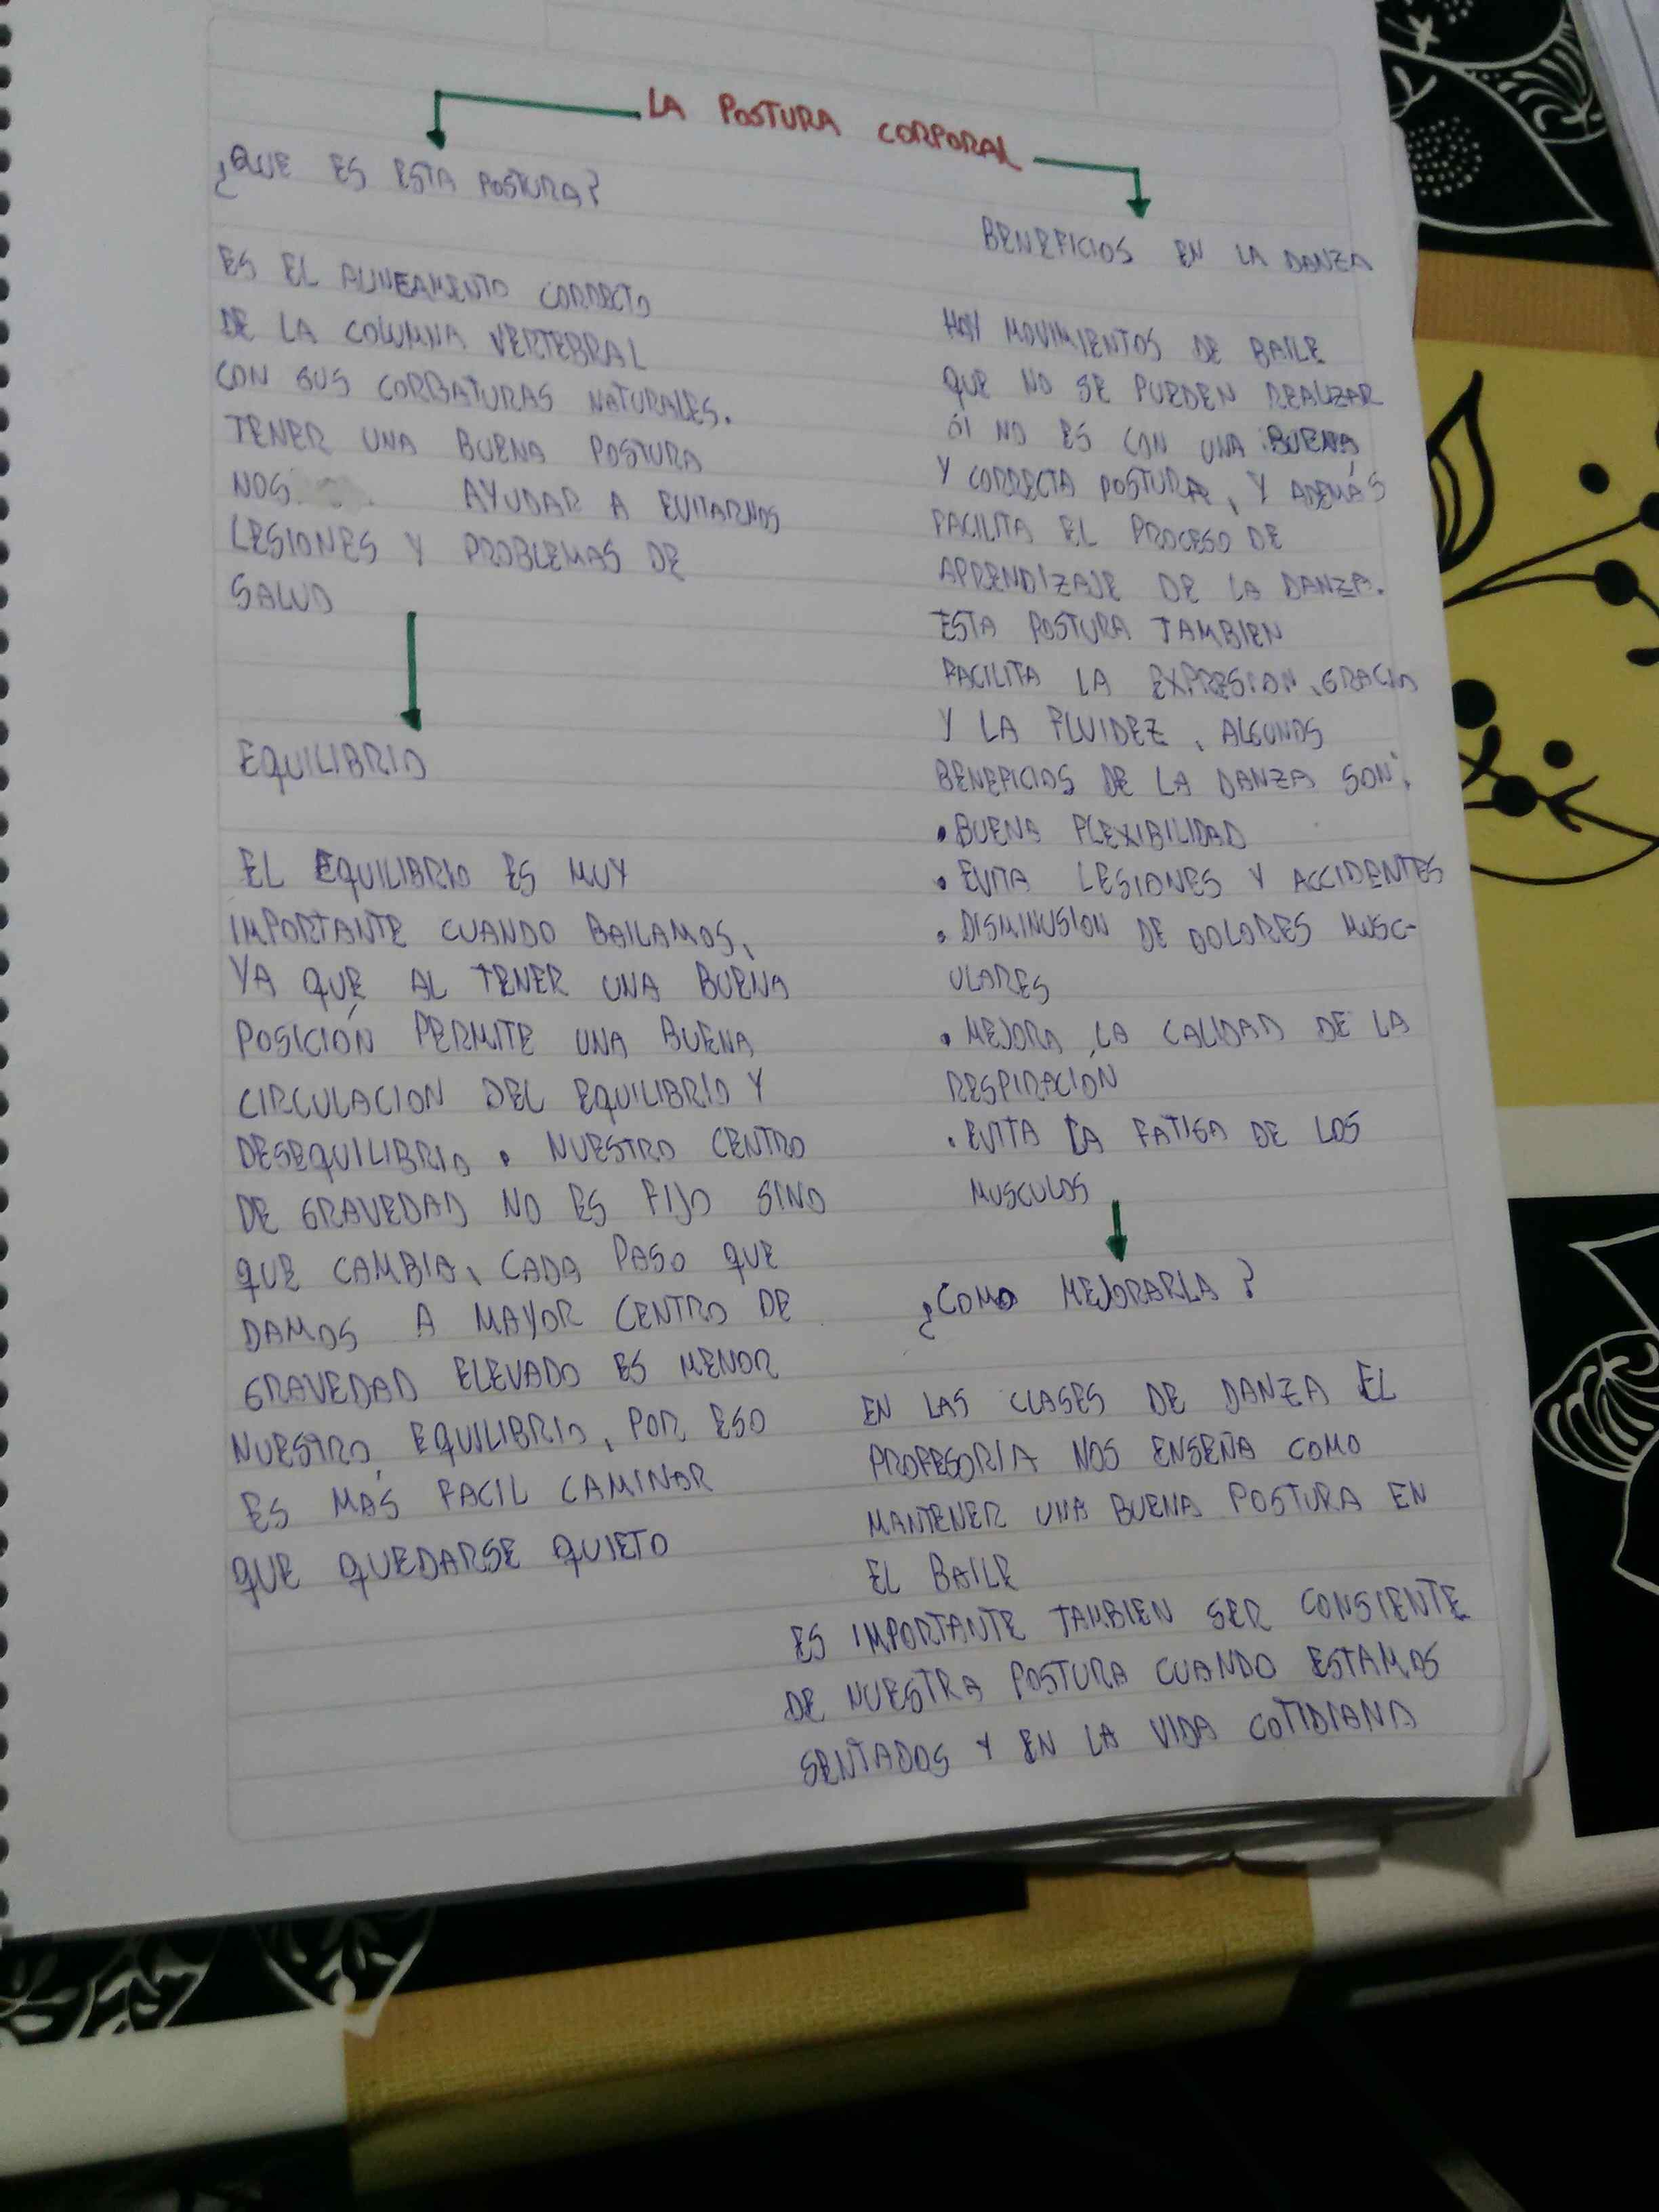 LA POSTURA CORPORAL
¿QUE ES ESTA POSTURA?
ES EL ALINEAMIENTO CORRECTO
DE LA COLUMNA VERTEBRAL
CON SUS CORBATURAS NATURALES.
TENER UNA BUENA POSTURA
NOS AYUDAR A EVITARNOS
LESIONES Y PROBLEMAS DE
SALUD
EQUILIBRIO
EL EQUILIBRIO ES MUY
IMPORTANTE CUANDO BAILAMOS,
YA QUE AL TENER UNA BUENA
POSICIÓN PERMITE UNA BUENA
CIRCULACION DEL EQUILIBRIO Y
DESEQUILIBRIO. NUESTRO CENTRO
DE GRAVEDAD NO ES FIJO SINO
QUE CAMBIA, CADA PASO QUE
DAMOS A MAYOR CENTRO DE
GRAVEDAD ELEVADO ES MENOR
NUESTRO EQUILIBRIO, POR ESO
ES MÁS FACIL CAMINAR
QUE QUEDARSE QUIETO
BENEFICIOS EN LA DANZA
HAY MOVIMIENTOS DE BAILE
QUE NO SE PUEDEN REALIZAR
SI NO ES CON UNA BUENA
Y CORRECTA POSTURA, Y ADEMÁS
FACILITA EL PROCESO DE
APRENDIZAJE DE LA DANZA.
ESTA POSTURA TAMBIEN
FACILITA LA EXPRESION, GRACIA
Y LA FLUIDEZ, ALGUNOS
BENEFICIOS DE LA DANZA SON:
• BUENA FLEXIBILIDAD
• EVITA LESIONES Y ACCIDENTES
• DISMINUSION DE DOLORES MUSC-
ULARES
• MEJORA LA CALIDAD DE LA
RESPIRACIÓN
• EVITA LA FATIGA DE LOS
MUSCULOS
¿COMO MEJORARLA?
EN LAS CLASES DE DANZA EL
PROFESOR/A NOS ENSEÑA COMO
MANTENER UNA BUENA POSTURA EN
EL BAILE
ES IMPORTANTE TAMBIEN SER CONSIENTE
DE NUESTRA POSTURA CUANDO ESTAMOS
SENTADOS Y EN LA VIDA COTIDIANA